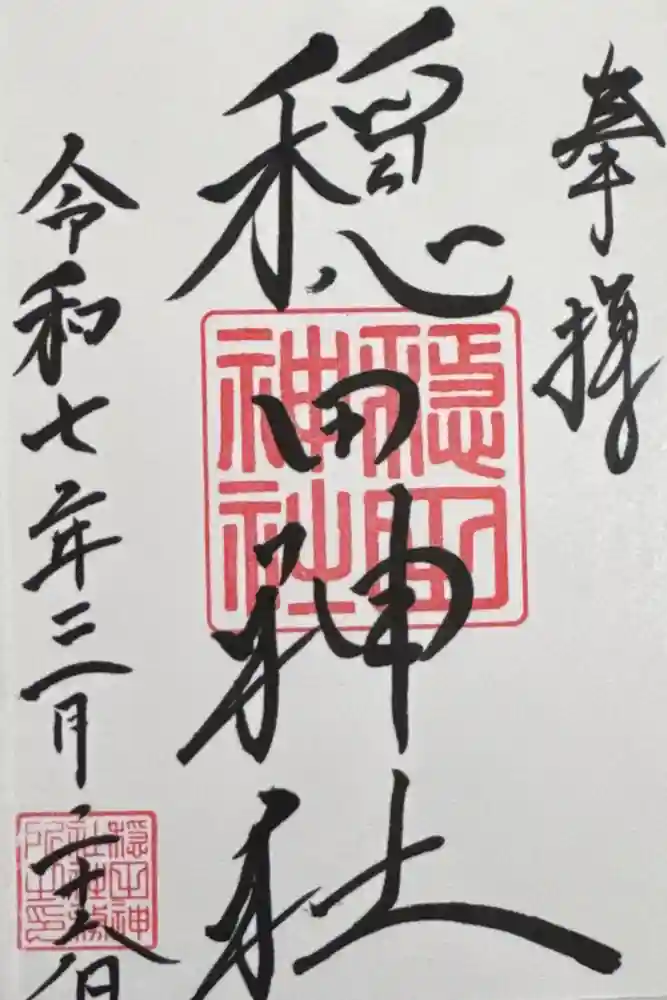 奉拝
穏田神社
穏田
神社
令和七年三月二十八日
穏田神
社社務
所之印